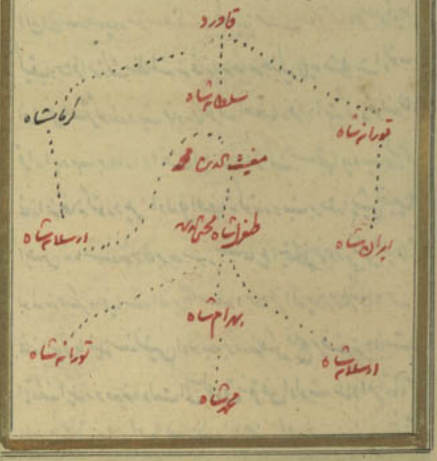 قاورد
سلطانشاه
کرمانشاه
تورانشاه
مغیث الدین محمد
ارسلانشاه
طغرلشاه
ایرانشاه
بهرامشاه
تورانشاه
ارسلانشاه
محمدشاه